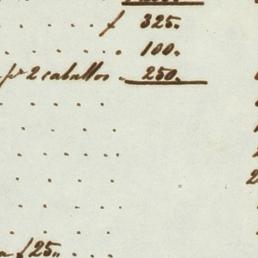 ƒ 325.
100.
pr 2 caballos . 250.
2
a ƒ 25,, . . .